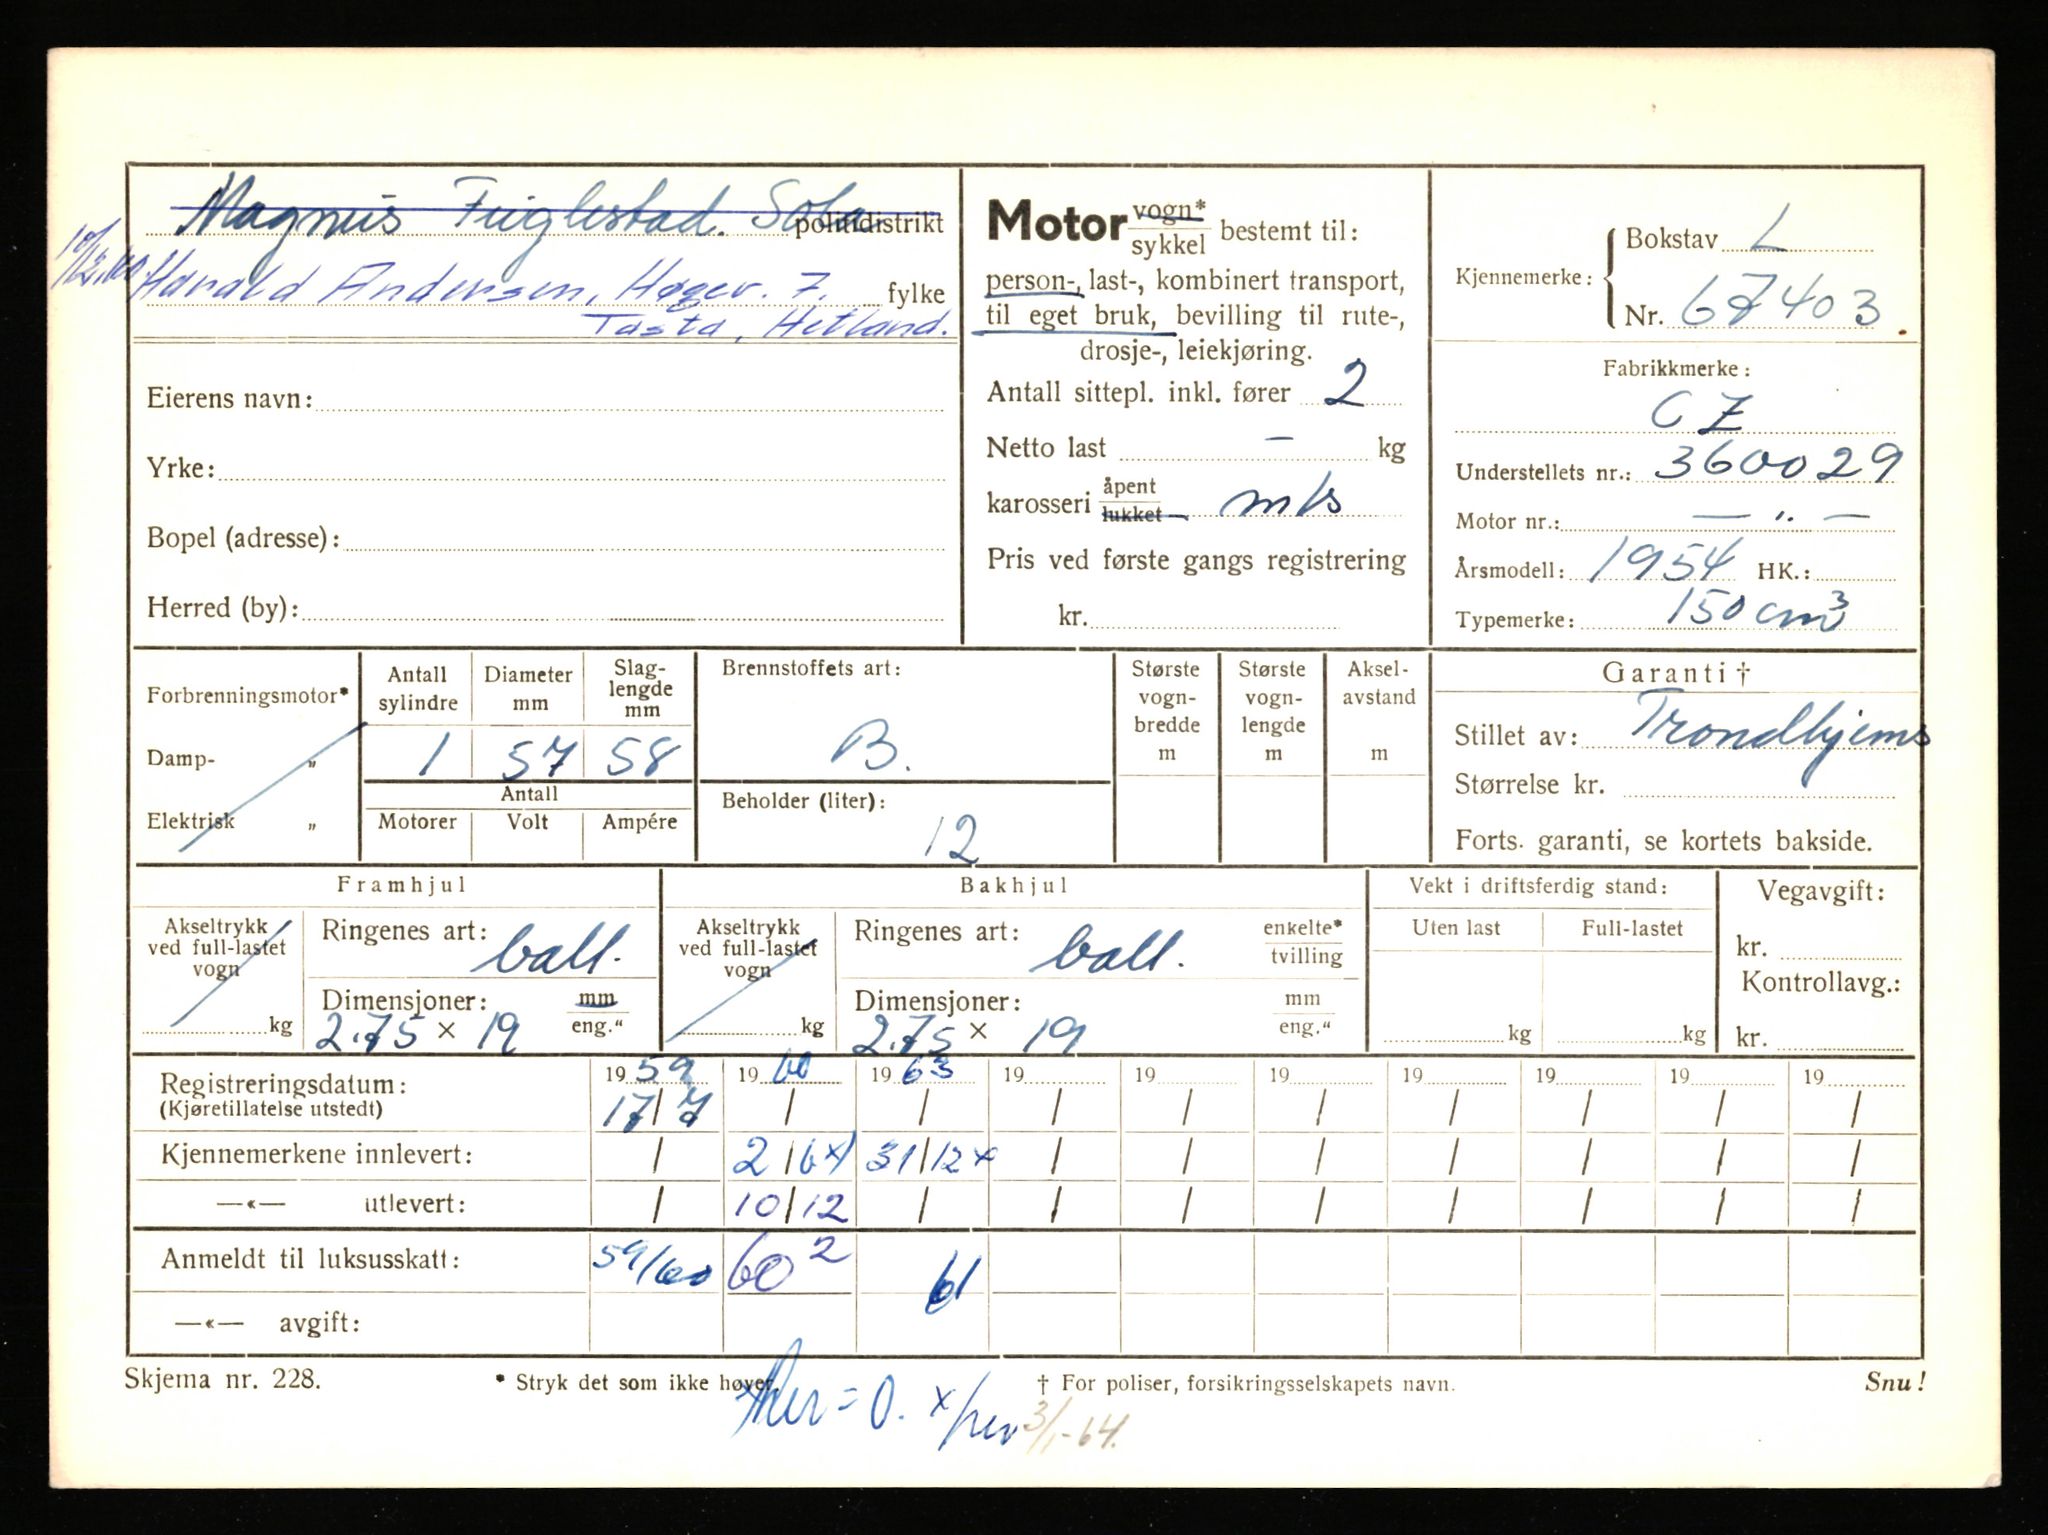 Magnus Fuglestad. Sola politidistrikt
10/12.60. Harald Andersen, Høgev. 7. fylke
Tasta, Hetland.
Eierens navn:
Yrke:
Bopel (adresse):
Herred (by):
Motor vogn* / sykkel bestemt til:
person-, last-, kombinert transport,
til eget bruk, bevilling til rute-,
drosje-, leiekjøring.
Antall sittepl. inkl. fører 2
Netto last – kg
karosseri åpent / lukket mks
Pris ved første gangs registrering
kr.
Kjennemerke: Bokstav L
Nr. 67403
Fabrikkmerke:
CZ
Understellets nr.: 360029
Motor nr.: — „ —
Årsmodell: 1954 HK.:
Typemerke: 150 cm³
Forbrenningsmotor*
Damp- „
Elektrisk „
Antall sylindre
Diameter mm
Slag-
lengde
mm
1 57 58
Antall
Motorer Volt Ampére
Brennstoffets art:
B.
Beholder (liter):
12
Største
vogn-
bredde
m
Største
vogn-
lengde
m
Aksel-
avstand
m
Garanti †
Stillet av: Trondhjems
Størrelse kr.
Forts. garanti, se kortets bakside.
Framhjul
Akseltrykk
ved full-lastet
vogn
kg
Ringenes art: ball.
Dimensjoner: mm / eng."
2.75 × 19
Bakhjul
Akseltrykk
ved full-lastet
vogn
kg
Ringenes art: ball. enkelte* / tvilling
Dimensjoner: mm / eng."
2.75 × 19
Vekt i driftsferdig stand:
Uten last Full-lastet
kg kg
Vegavgift:
kr.
Kontrollavg.:
kr.
Registreringsdatum: 19 59 19 60 19 63 19 19 19 19 19 19 19
(Kjøretillatelse utstedt) 17/7 / / / / / / / / /
Kjennemerkene innlevert: / 2/6 x) 31/12 x / / / / / / /
—«— utlevert: / 10/12 / / / / / / / /
Anmeldt til luksusskatt: 59/60 60 2 61
—«— avgift:
Skjema nr. 228. * Stryk det som ikke høver † For poliser, forsikringsselskapets navn. Snu!
= 0. x/ 3/1-64.